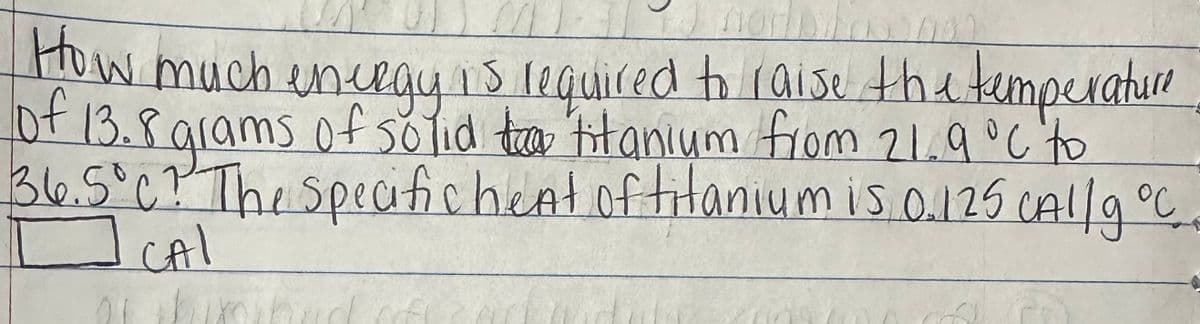 How much energy is required to raise the temperature
of 13.8 grams of solid titanium from 21.9 °C to
36.5°C? The specific heat of titanium is 0.125 CAl/g °C
CAl